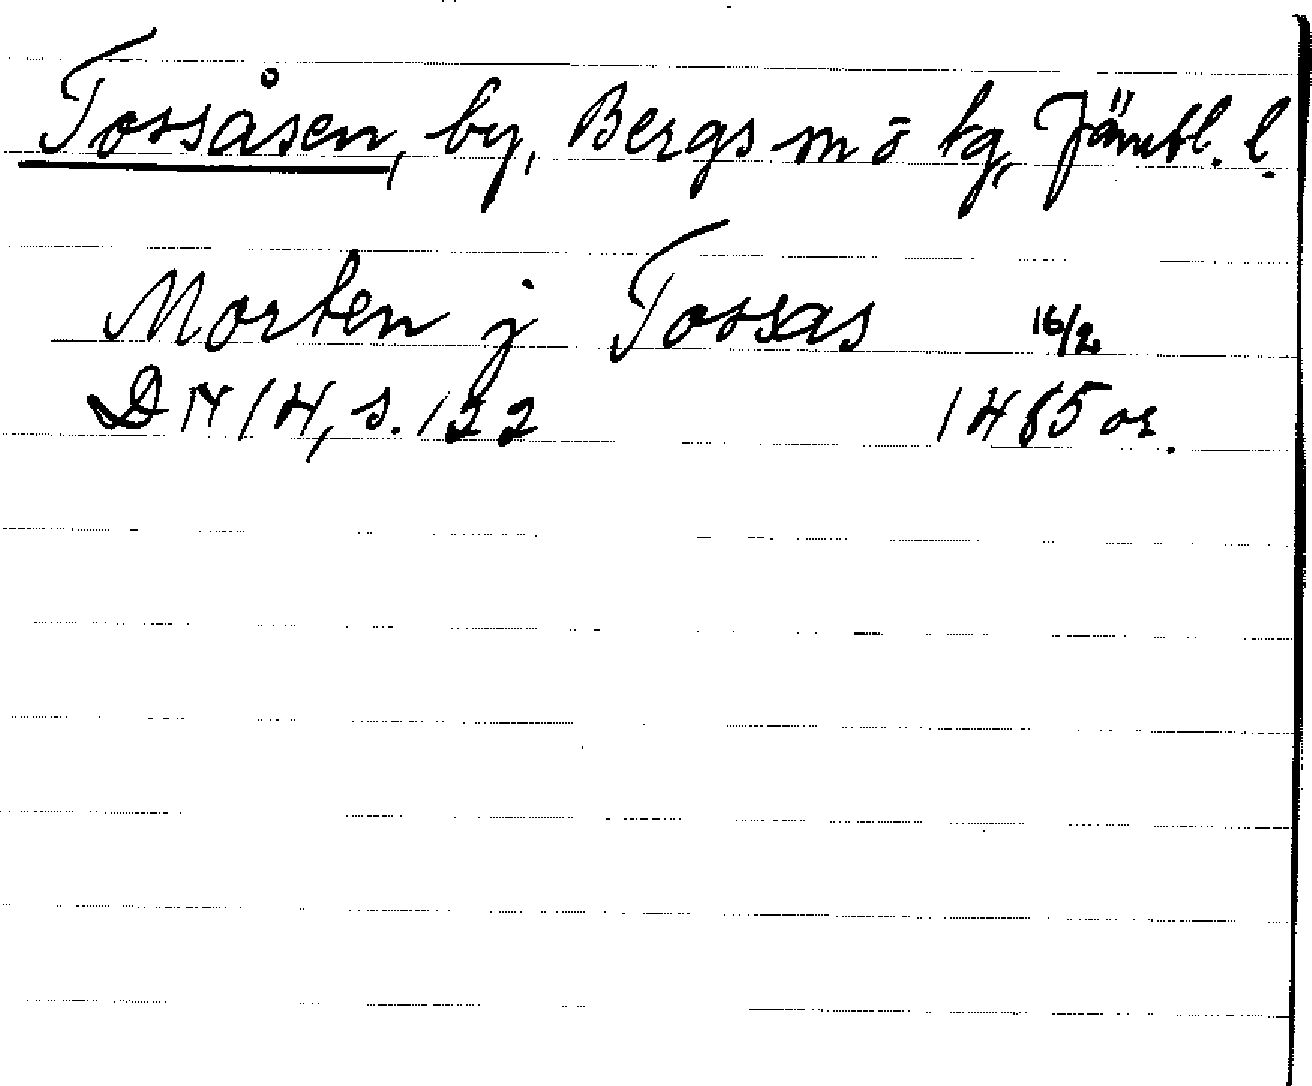 Tossåsen, by, Bergs m ō tg, Jämtl. l.
Morten j Tossas 16/2
DN 14, s. 122 1485 or.